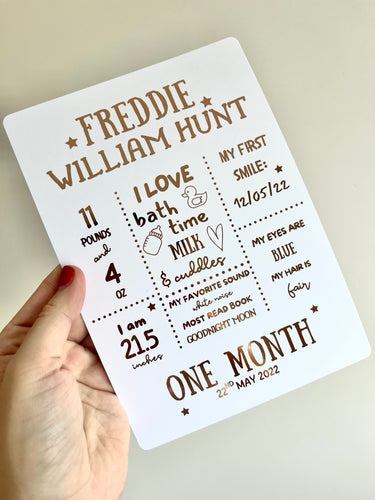 FREDDIE
WILLIAM HUNT
11
POUNDS
and
4
OZ
I LOVE
bath
time
MILK
& cuddles
MY FIRST
SMILE:
12/05/22
I am
21.5
inches
MY FAVORITE SOUND
white noise
MOST READ BOOK
GOODNIGHT MOON
MY EYES ARE
BLUE
MY HAIR IS
fair
ONE MONTH
22ND MAY 2022